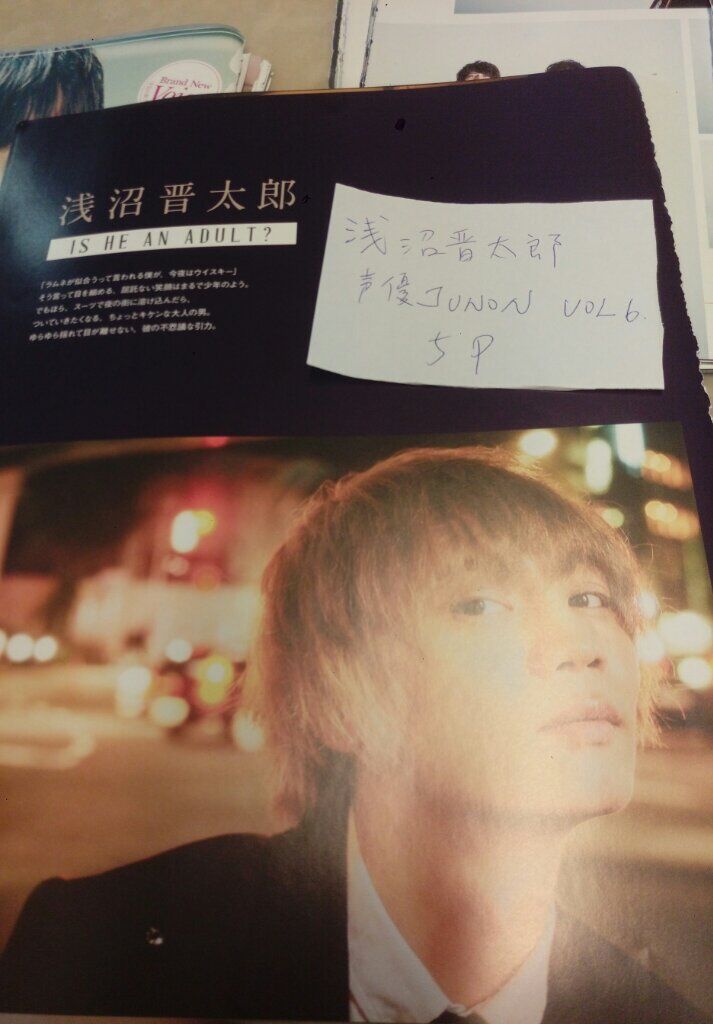 Brand New
Voi
浅沼晋太郎
IS HE AN ADULT?
「ラムネが似合うって言われる僕が、今夜はウイスキー」
そう言って目を細める、屈託ない笑顔はまるで少年のよう。
でもほら、スーツで夜の街に溶け込んだら、
ついていきたくなる、ちょっとキケンな大人の男。
ゆらゆら揺れて目が離せない、彼の不思議な引力。
浅沼晋太郎
声優JUNON VOL6.
5P